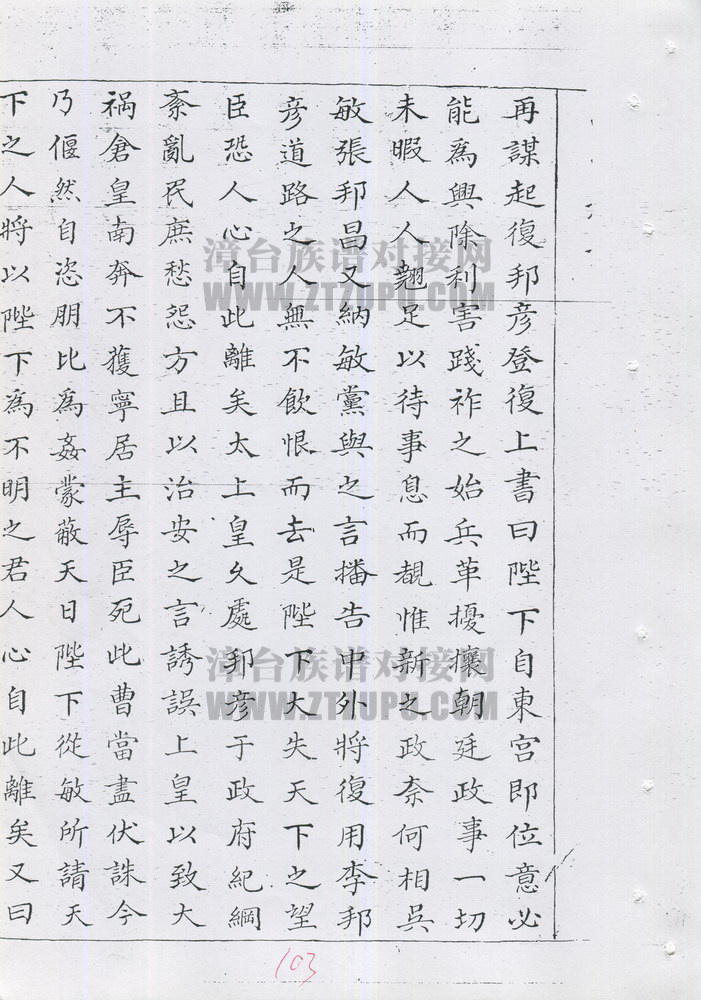 再謀起復邦彦登復上書曰陛下自東宮即位意必
能為興除利害踐祚之始兵革擾攘朝廷政事一切
未暇人人翹足以待事息而覩惟新之政奈何相吳
敏張邦昌又納敏黨與之言播告中外將復用李邦
彦道路之人無不飲恨而去是陛下大失天下之望
臣恐人心自此離矣太上皇久處邦彦于政府紀綱
紊亂民庶愁怨方且以治安之言誘誤上皇以致大
禍倉皇南奔不獲寧居主辱臣死此曹當盡伏誅今
乃偃然自恣朋比為姦蒙蔽天日陛下從敏所請天
下之人將以陛下為不明之君人心自此離矣又曰
漳台族谱对接网
WWW.ZTZUPU.COM
漳台族谱对接网
WWW.ZTZUPU.COM
103